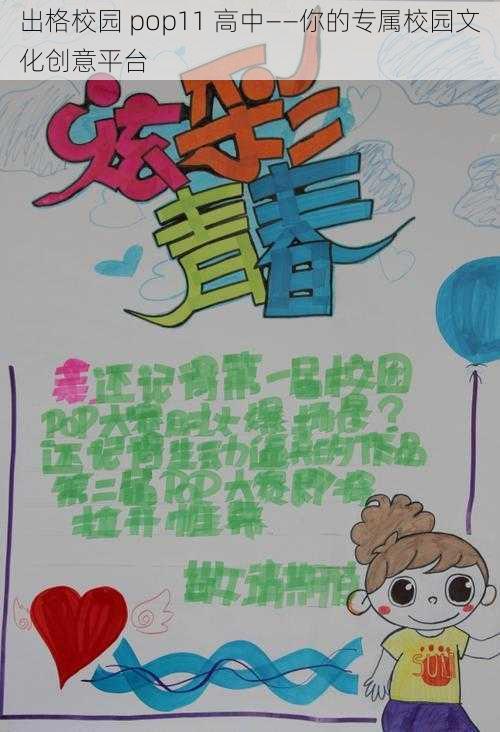 出格校园 pop11 高中——你的专属校园文
化创意平台
炫彩
青春
还记得第一届校园
POP大赛的火爆场景？
还记得生动逼真的作品
第二届POP大赛即将
拉开帷幕
敬请期待
SUN